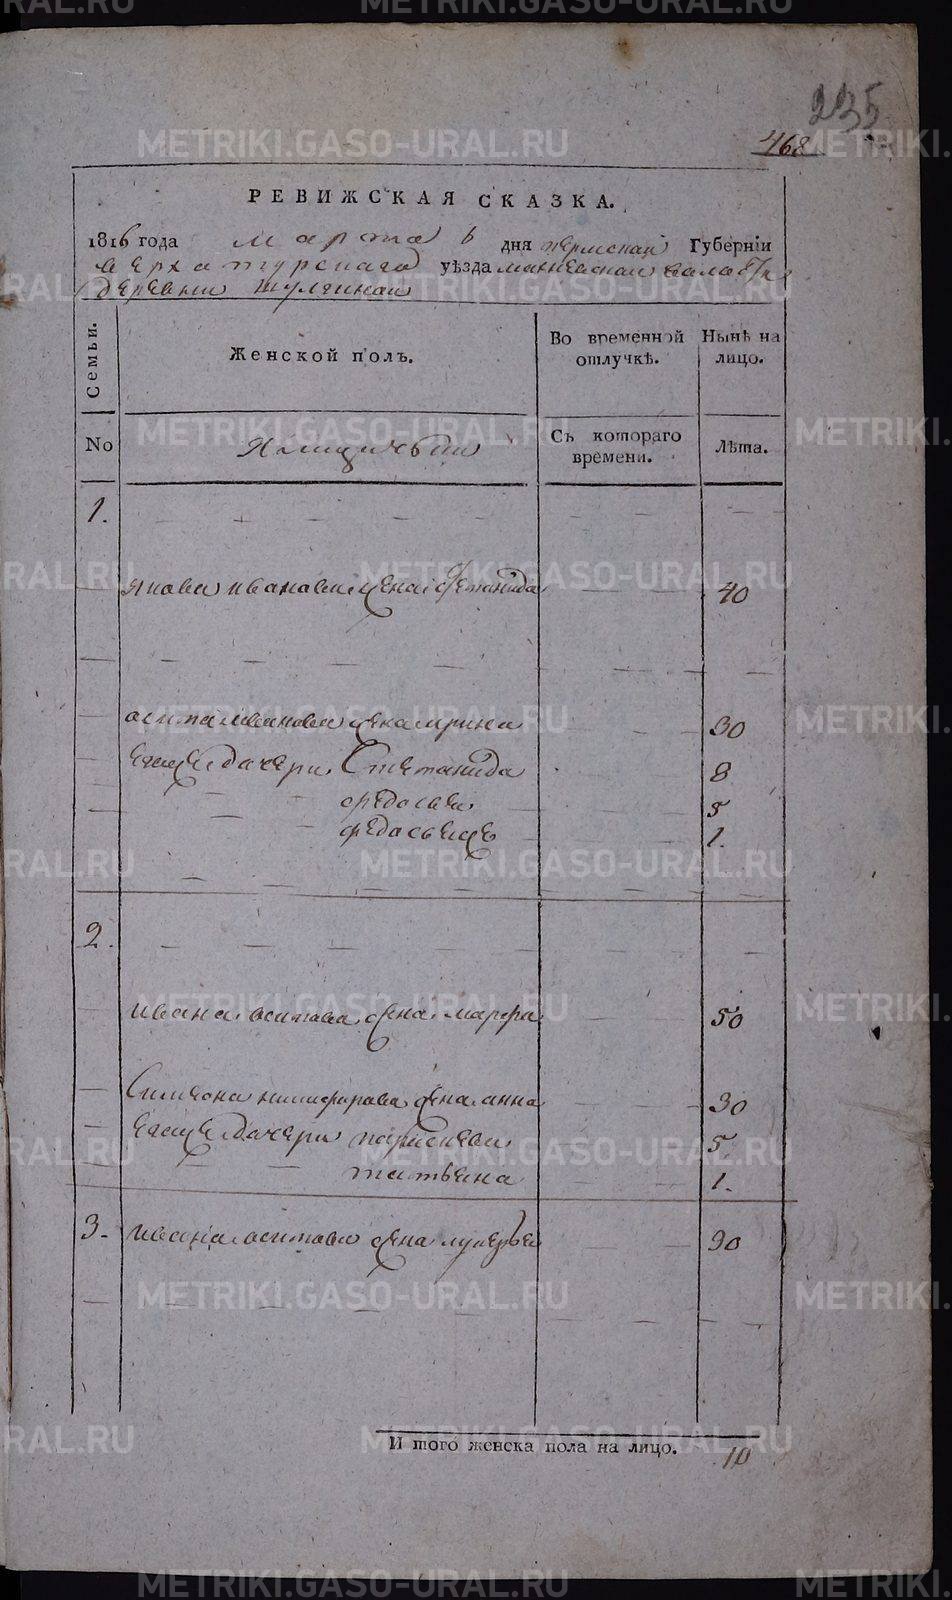 235
468
РЕВИЖСКАЯ СКАЗКА.
1816 года марта 6 дня пермскай Губерніи
верхатурскаго уѣзда махневскай
деревни
Семьи.
Женской полъ.
Во временной отлучкѣ.
Нынѣ на лицо.
No
Ямщичьей
Съ котораго времени.
Лѣта.
1.
якова иванова жена степанида 40
осипа иванова жена ирина 30
егоже дочери Степанида 8
федосья 5
2.
ивана осипова жена марфа 50
Симеона никифорова жена анна 30
егоже дочери 5
татьяна 1.
3. ивана осипова жена лукерья 30
И того женска пола на лицо. 10
METRIKI.GASO-URAL.RU